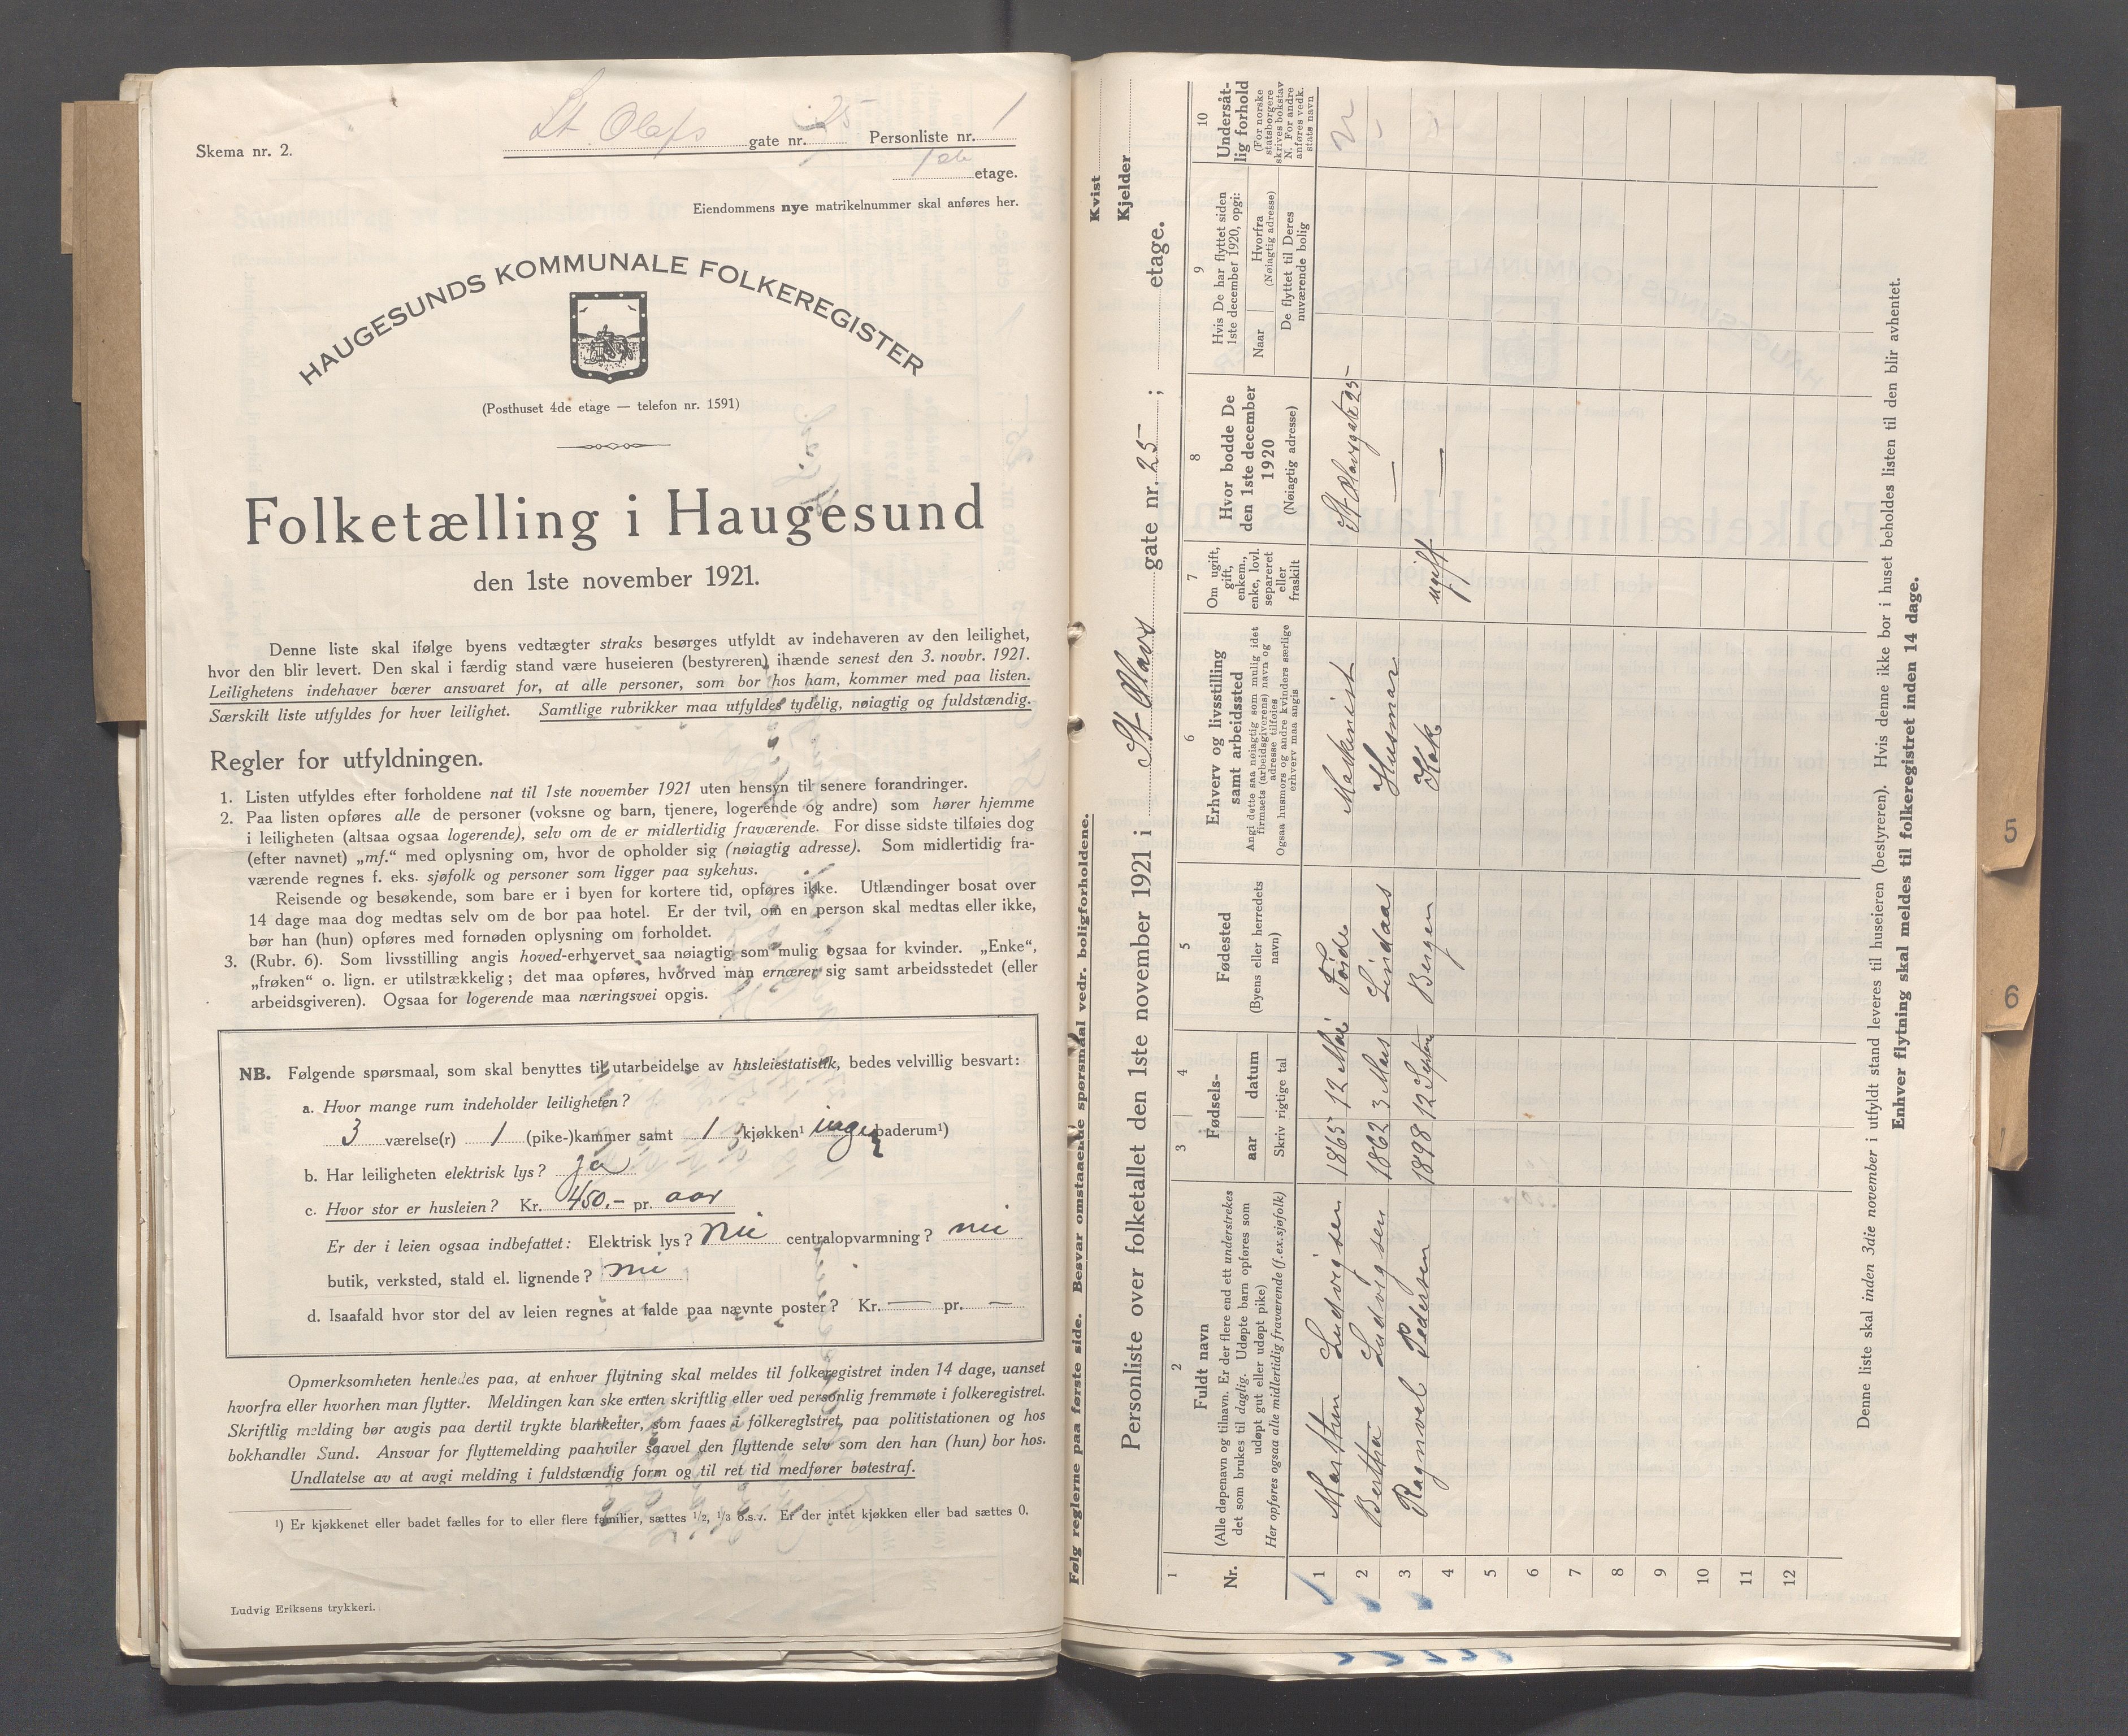 Skema nr. 2.
St Olafs gate nr. 25 Personliste nr. 1
1ste etage.
Eiendommens nye matrikelnummer skal anføres her.
HAUGESUNDS KOMMUNALE FOLKEREGISTER
(Posthuset 4de etage — telefon nr. 1591)
Folketælling i Haugesund
den 1ste november 1921.
Denne liste skal ifølge byens vedtægter straks besørges utfyldt av indehaveren av den leilighet,
hvor den blir levert. Den skal i færdig stand være huseieren (bestyreren) ihænde senest den 3. novbr. 1921.
Leilighetens indehaver bærer ansvaret for, at alle personer, som bor hos ham, kommer med paa listen.
Særskilt liste utfyldes for hver leilighet. Samtlige rubrikker maa utfyldes tydelig, nøiagtig og fuldstændig.
Regler for utfyldningen.
1. Listen utfyldes efter forholdene nat til 1ste november 1921 uten hensyn til senere forandringer.
2. Paa listen opføres alle de personer (voksne og barn, tjenere, logerende og andre) som hører hjemme
i leiligheten (altsaa ogsaa logerende), selv om de er midlertidig fraværende. For disse sidste tilføies dog
(efter navnet) „mf.“ med oplysning om, hvor de opholder sig (nøiagtig adresse). Som midlertidig fra-
værende regnes f. eks. sjøfolk og personer som ligger paa sykehus.
Reisende og besøkende, som bare er i byen for kortere tid, opføres ikke. Utlændinger bosat over
14 dage maa dog medtas selv om de bor paa hotel. Er der tvil, om en person skal medtas eller ikke,
bør han (hun) opføres med fornøden oplysning om forholdet.
3. (Rubr. 6). Som livsstilling angis hoved-erhvervet saa nøiagtig som mulig ogsaa for kvinder. „Enke“,
„frøken“ o. lign. er utilstrækkelig; det maa opføres, hvorved man ernærer sig samt arbeidsstedet (eller
arbeidsgiveren). Ogsaa for logerende maa næringsvei opgis.
NB. Følgende spørsmaal, som skal benyttes til utarbeidelse av husleiestatistik, bedes velvillig besvart:
a. Hvor mange rum indeholder leiligheten?
3 værelse(r) 1 (pike-)kammer samt 1 kjøkken¹ ingen baderum¹)
b. Har leiligheten elektrisk lys? ja
c. Hvor stor er husleien? Kr. 450.- pr. aar
Er der i leien ogsaa indbefattet: Elektrisk lys? nei centralopvarmning? nei
butik, verksted, stald el. lignende? nei
d. Isaafald hvor stor del av leien regnes at falde paa nævnte poster? Kr. — pr. —
Opmerksomheten henledes paa, at enhver flytning skal meldes til folkeregistret inden 14 dage, uanset
hvorfra eller hvorhen man flytter. Meldingen kan ske enten skriftlig eller ved personlig fremmøte i folkeregistret.
Skriftlig melding bør avgis paa dertil trykte blanketter, som faaes i folkeregistret, paa politistationen og hos
bokhandler Sund. Ansvar for flyttemelding paahviler saavel den flyttende selv som den han (hun) bor hos.
Undlatelse av at avgi melding i fuldstændig form og til ret tid medfører bøtestraf.
¹) Er kjøkkenet eller badet fælles for to eller flere familier, sættes 1/2, 1/3 o.s.v. Er der intet kjøkken eller bad sættes 0.
Ludvig Eriksens trykkeri.
Følg reglerne paa første side. Besvar omstaaende spørsmaal vedr. boligforholdene.
Kvist
Kjelder
Personliste over folketallet den 1ste november 1921 i St Olavs gate nr. 25 ; etage.
1 2 3 4 5 6 7 8 9 10
Nr.
Fuldt navn
(Alle døpenavn og tilnavn. Er der flere end ett understrekes
det som brukes til daglig. Udøpte barn opføres som
udøpt gut eller udøpt pike)
Her opføres ogsaa alle midlertidig fraværende (f.ex.sjøfolk)
Fødsels-
aar datum
Skriv rigtige tal
Fødested
(Byens eller herredets
navn)
Erhverv og livsstilling
samt arbeidssted
Angi dette saa nøiagtig som mulig idet
firmaets (arbeidsgiverens) navn og
adresse tilføies
Ogsaa husmors og andre kvinders særlige
erhverv maa angis
Om ugift,
gift,
enkem.,
enke, lovl.
separeret
eller
fraskilt
Hvor bodde De
den 1ste december
1920
(Nøiagtig adresse)
Hvis De har flyttet siden
1ste december 1920, opgi:
Naar
Hvorfra
(Nøiagtig adresse)
De flyttet til Deres
nuværende bolig
Undersåt-
lig forhold
(For norske
statsborgere
skrives bokstav
N. For andre
anføres vedk.
stats navn
1 Marthin Ludvigsen 1865 12 Mai Førde Maskinist St Olavsgate 25 N
2 Bertha Ludvigsen 1862 3 Mars Lindaas Husmor — -
3 Ragnvel Pedersen 1898 12 Septbr Bergen Kok ugift —
4
5
6
7
8
9
10
11
12
Denne liste skal inden 3die november i utfyldt stand leveres til huseieren (bestyreren). Hvis denne ikke bor i huset beholdes listen til den blir avhentet.
Enhver flytning skal meldes til folkeregistret inden 14 dage.
5
6